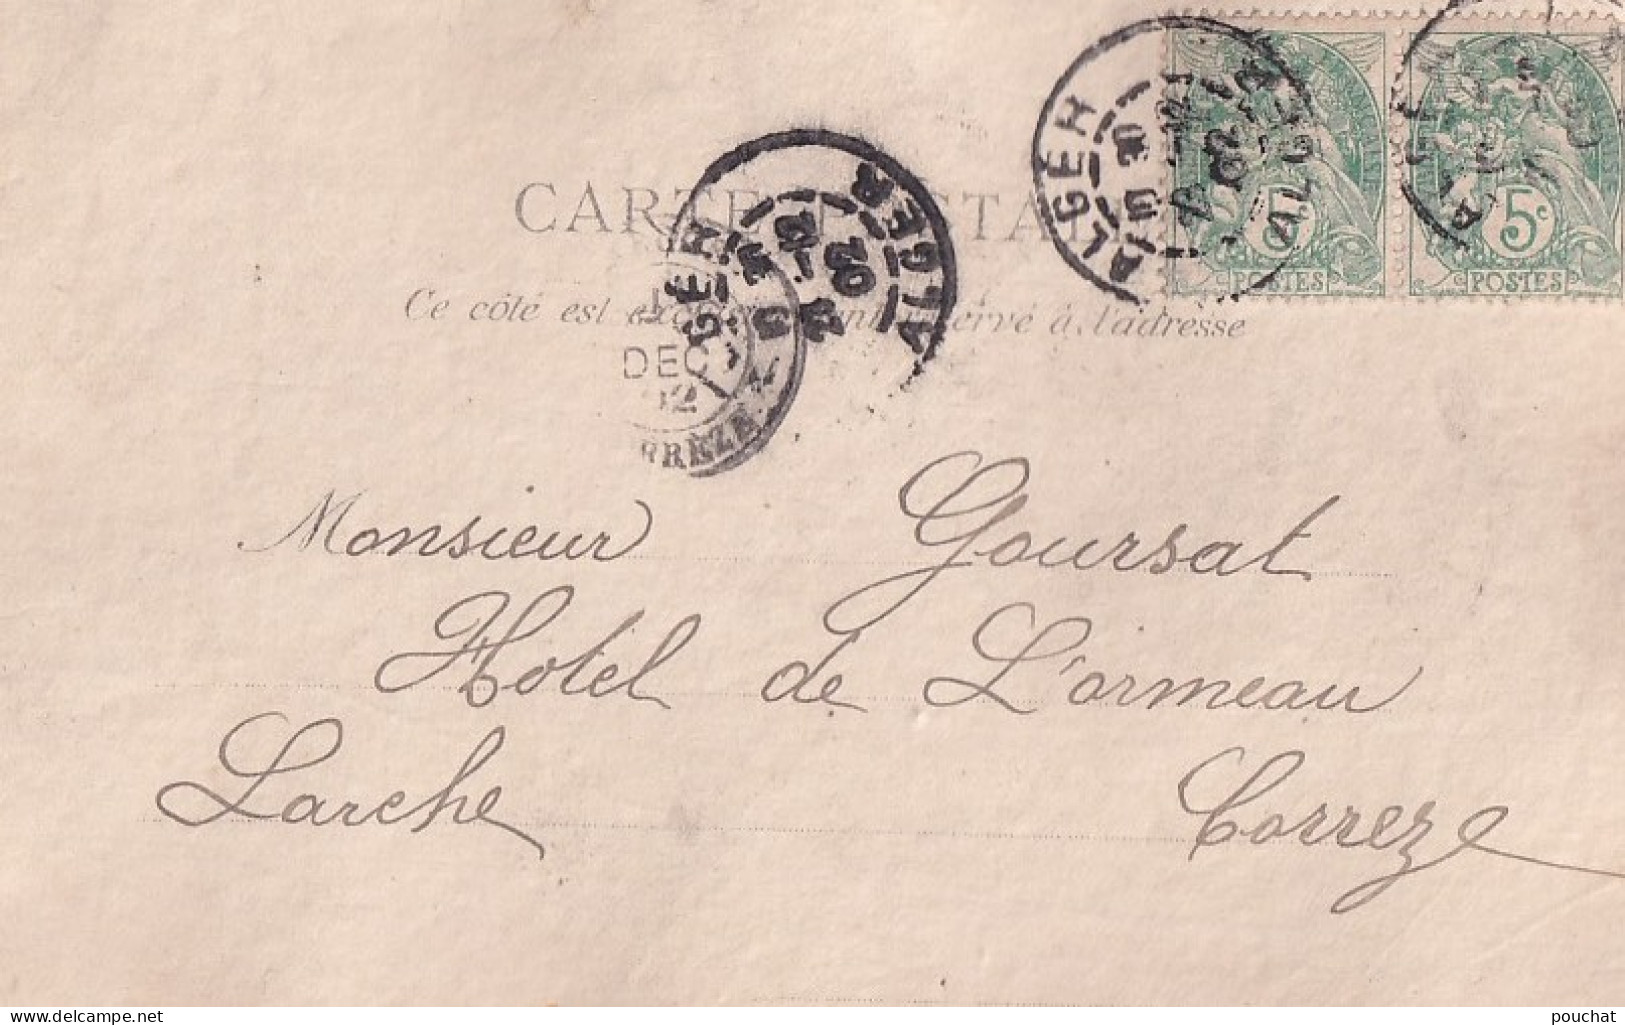 CARTE POSTALE
Ce côté est exclusivement réservé à l'adresse
ALGER ALGER
ALGER ALGER
02
DEC
5c
POSTES
5c
POSTES
Monsieur Goursat
Hotel de L'ormeau
Larche Correze
www.delcampe.net
pouchat